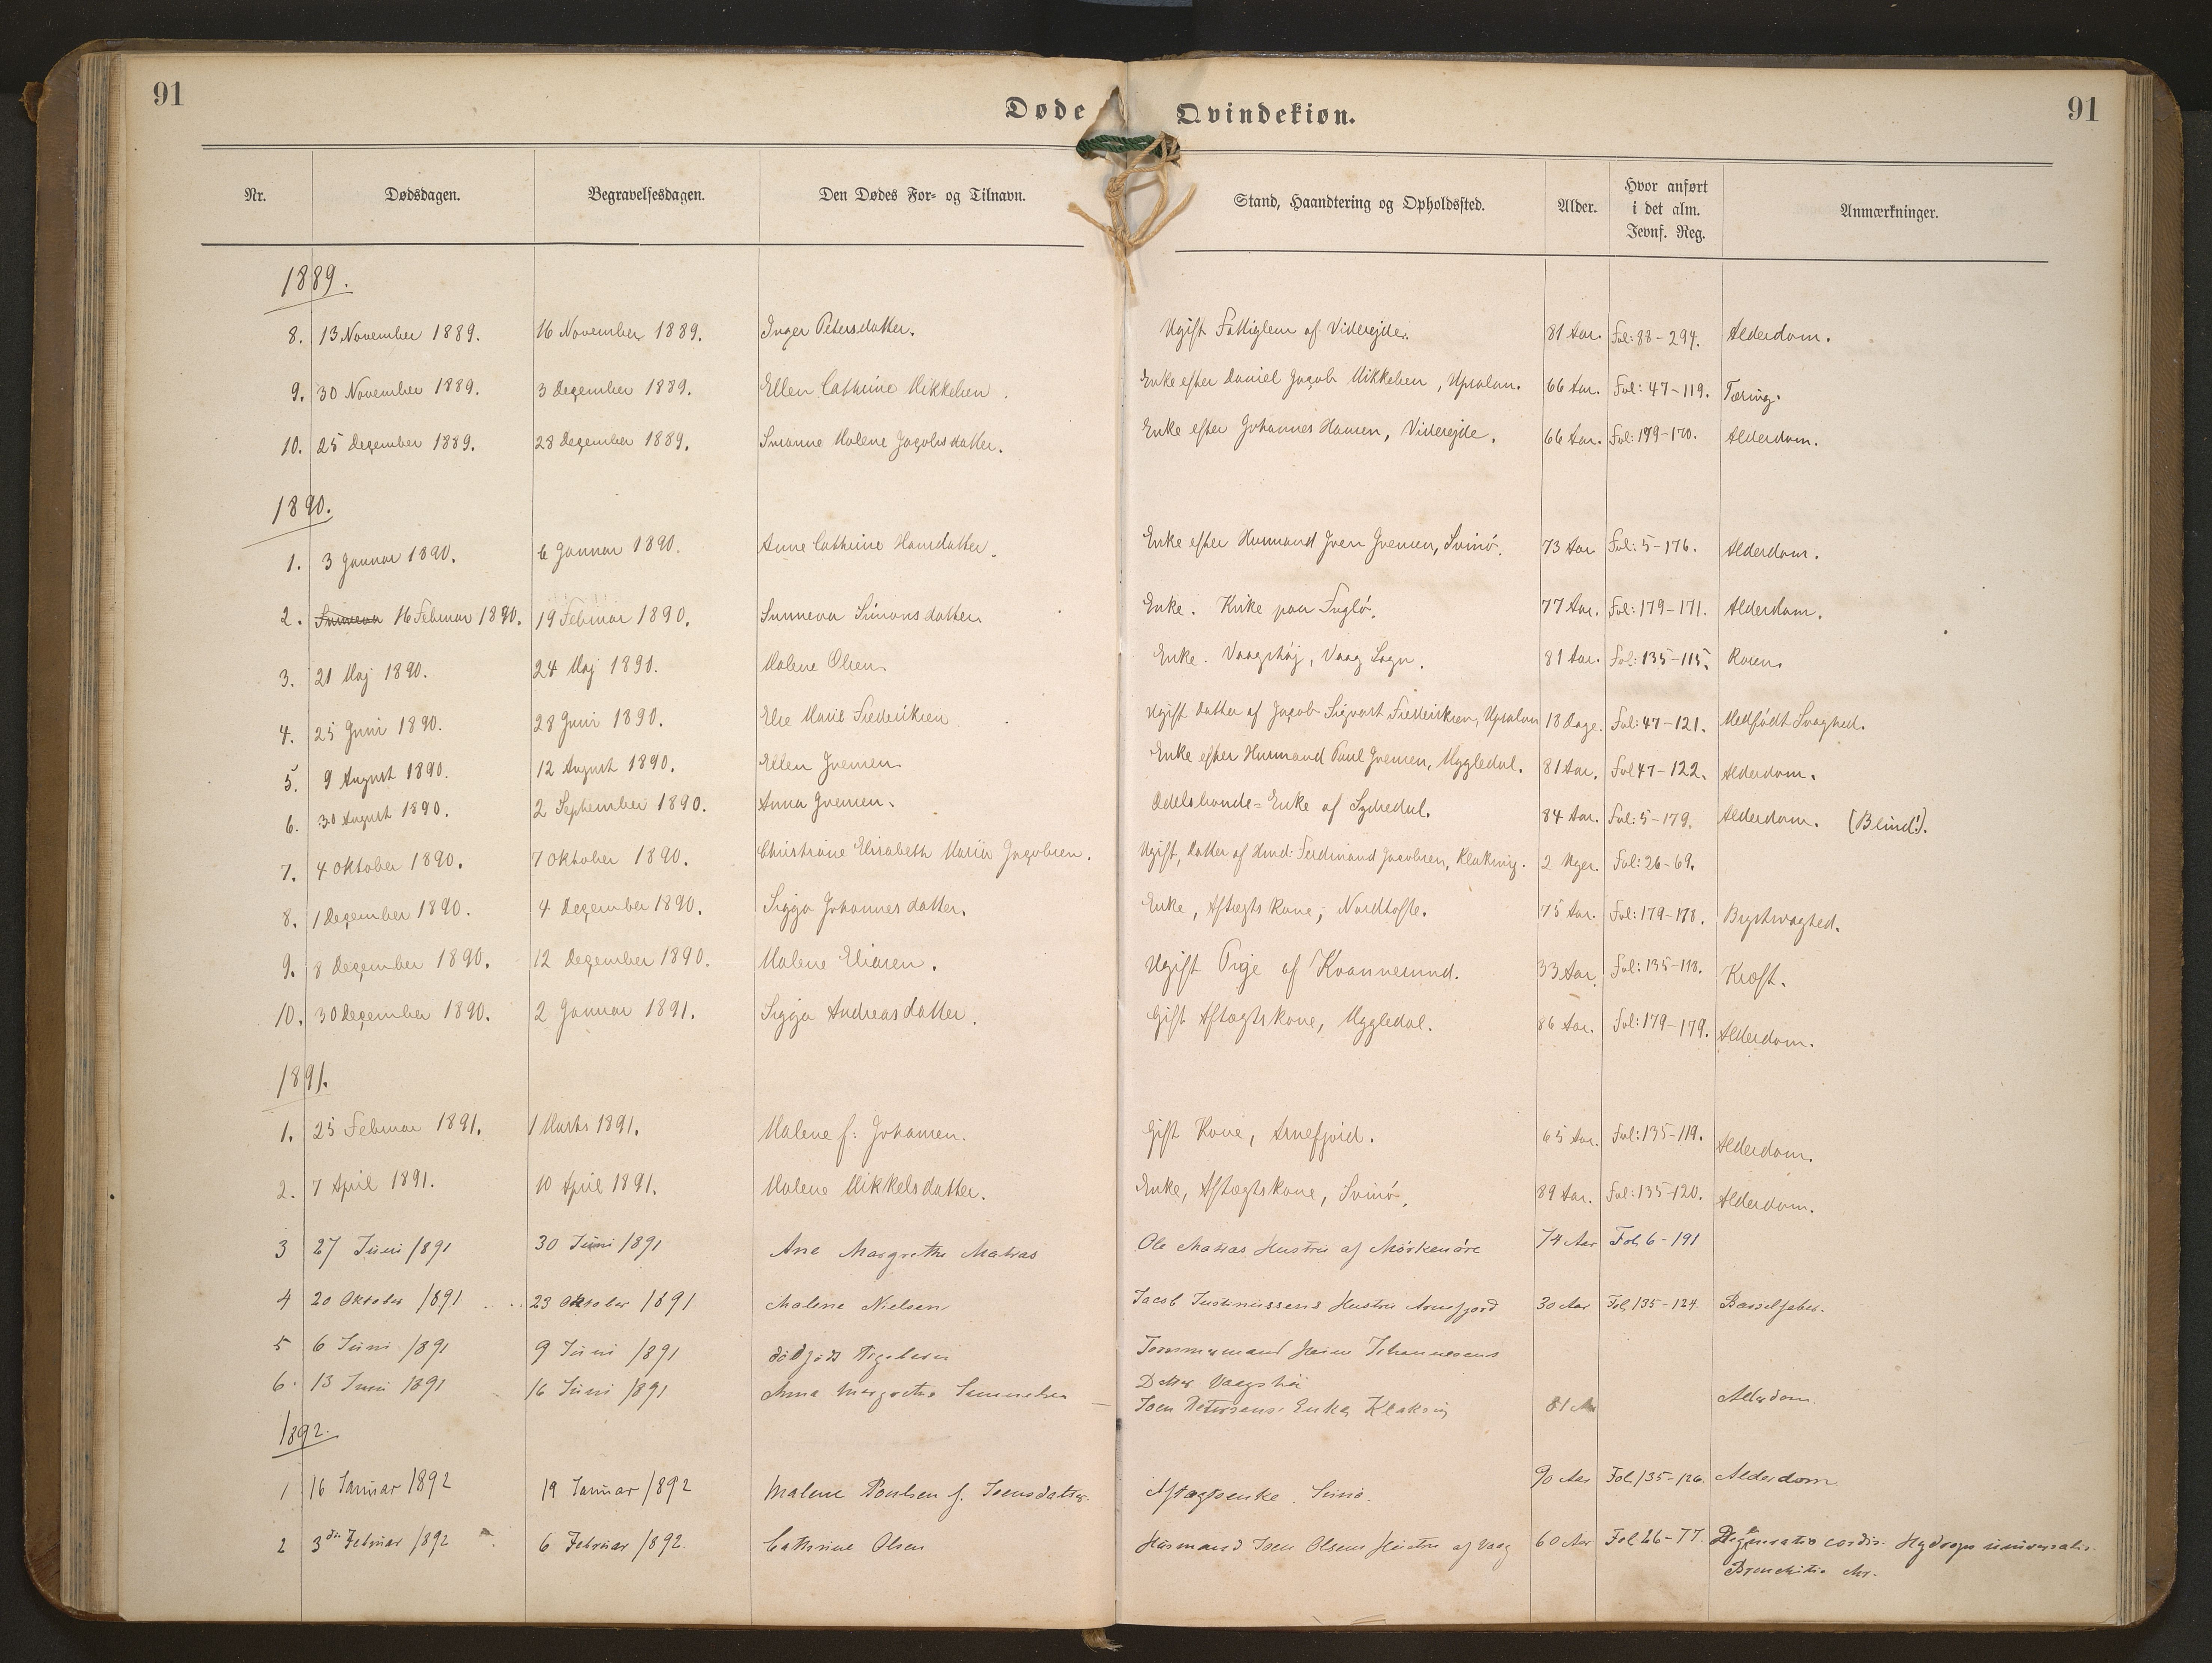 91
Døde Qvindekiøn.
91
Nr. Dødsdagen. Begravelsesdagen. Den Dødes For- og Tilnavn. Stand, Haandtering og Opholdssted. Alder. Hvor anført i det alm. Jevnf. Reg. Anmærkninger.
1889.
8. 13 November 1889. 16 November 1889. Inger Petersdatter. Ugift Fattiglem af Viderejde. 81 Aar. Fol: 88-294. Alderdom.
9. 30 November 1889. 3 December 1889. Ellen Cathrine Mikkelsen. Enke efter Daniel Jacob Mikkelsen, Upsalum. 66 Aar. Fol: 47-119. Tæring.
10. 25 December 1889. 28 December 1889. Susanne Malene Jacobsdatter. Enke efter Johannes Hansen, Viderejde. 66 Aar. Fol: 179-170. Alderdom.
1890.
1. 3 Januar 1890. 6 Januar 1890. Anne Cathrine Hansdatter. Enke efter Husmand Iver Iversen, Svinø. 73 Aar Fol: 5-176. Alderdom.
2. Sunneva 16 Februar 1890. 19 Februar 1890. Sunneva Simonsdatter Enke. Kirke paa Fuglø. 77 Aar. Fol: 179-171. Alderdom.
3. 21 Maj 1890. 24 Maj 1890. Malene Olsen. Enke. Vaagshøj, Vaag Sogn. 81 Aar. Fol: 135-115.
4. 25 Juni 1890. 28 Juni 1890. Else Marie Frederiksen. Ugift datter af Jacob Sigvart Frederiksen, Upsalum 18 Dage. Fol: 47-121. Medfødt Svaghed.
5. 9 August 1890. 12 August 1890. Ellen Iversen Enke efter Husmand Paul Iversen, Myggledal. 81 Aar. Fol 47-122. Alderdom.
6. 30 August 1890. 2 September 1890. Anna Iversen. Odelsbonde-Enke af Sydredal. 84 Aar. Fol: 5-179. Alderdom. (Blind!).
7. 4 Oktober 1890. 7 Oktober 1890. Christiane Elisabeth Maria Jacobsen. Ugift, datter af Hmd: Ferdinand Jacobsen, Klaksvig. 2 Uger. Fol: 26-69.
8. 1 December 1890. 4 December 1890. Sigga Johannesdatter. Enke, Aftægtskone, Nordtofte. 75 Aar. Fol: 179-178. Brystsvaghed.
9. 8 December 1890. 12 December 1890. Malene Eliasen. Ugift Pige af Kvannesund. 33 Aar. Fol: 135-118. Kræft.
10. 30 December 1890. 2 Januar 1891. Sigga Andreasdatter. Gift Aftægtskone, Myggledal. 86 Aar. Fol: 179-179. Alderdom.
1891.
1. 25 Februar 1891. 1 Marts 1891. Malene f: Johansen. Gift Kone, Arnefjord. 65 Aar. Fol: 135-119. Alderdom.
2. 7 April 1891. 10 April 1891. Malene Mikkelsdatter. Enke, Aftægtskone, Svinø. 89 Aar. Fol: 135-120. Alderdom.
3 27 Juni 1891 30 Juni 1891 Ane Margrethe Matras Ole Matras Hustru af Mørkenøre 74 Aar Fol 6-191
4 20 Oktober 1891 23 Oktober 1891 Malene Nielsen Jacob Justinussens Hustru Arnefjord 30 Aar Fol 135-124. Barselfeber.
5 6 Juni 1891 9 Juni 1891 dødfødt Pigebarn Tømmermand Heine Johannesens
Datter Vaagshøi
6. 13 Juni 1891 16 Juni 1891 Anna Margrethe Samuelsen Joen Petersens Enke, Klaksvig 81 Aar Alderdom.
1892.
1 16 Januar 1892 19 Januar 1892 Malene Poulsen f. Joensdatter. Aftægtsenke. Svinø. 90 Aar Fol 135-126. Alderdom
2 3die Februar 1892 6 Februar 1892. Cathrine Olsen Husmand Joen Olsens Hustru af Vaag 60 Aar Fol 26-77. Degeneratio cordis. Hydrops universalis.
Bronchitis chr.